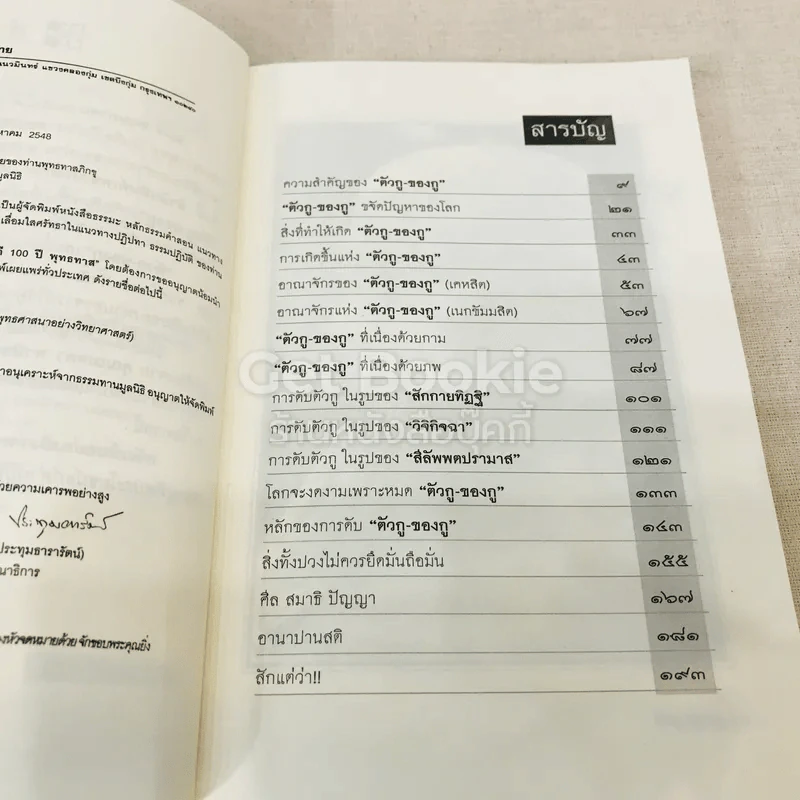 าย
นวมินทร์ แขวงคลองกุ่ม เขตบึงกุ่ม กรุงเทพฯ ๑๐๒๔๐
หาคม 2548
ยของท่านพุทธทาสภิกขุ
มูลนิธิ
เป็นผู้จัดพิมพ์หนังสือธรรมะ หลักธรรมคำสอน แนวทาง
เลื่อมใสศรัทธาในแนวทางปฏิปทา ธรรมปฏิบัติ ของท่าน
100 ปี พุทธทาส" โดยต้องการขออนุญาตน้อมนำ
พ์เผยแพร่ทั่วประเทศ ดังรายชื่อต่อไปนี้
พุทธศาสนาอย่างวิทยาศาสตร์)
าอนุเคราะห์จากธรรมทานมูลนิธิ อนุญาตให้จัดพิมพ์
วยความเคารพอย่างสูง
ประทุมธารารัตน์)
นาธิการ
งหัวจดหมายด้วย จักขอบพระคุณยิ่ง
สารบัญ
ความสำคัญของ "ตัวกู-ของกู" ๙
"ตัวกู-ของกู" ขจัดปัญหาของโลก ๒๑
สิ่งที่ทำให้เกิด "ตัวกู-ของกู" ๓๓
การเกิดขึ้นแห่ง "ตัวกู-ของกู" ๔๓
อาณาจักรของ "ตัวกู-ของกู" (เคหสิต) ๕๓
อาณาจักรแห่ง "ตัวกู-ของกู" (เนกขัมมสิต) ๖๗
"ตัวกู-ของกู" ที่เนื่องด้วยกาม ๗๗
"ตัวกู-ของกู" ที่เนื่องด้วยภพ ๘๗
การดับตัวกู ในรูปของ "สักกายทิฏฐิ" ๑๐๑
การดับตัวกู ในรูปของ "วิจิกิจฉา" ๑๑๑
การดับตัวกู ในรูปของ "สีลัพพตปรามาส" ๑๒๑
โลกจะงดงามเพราะหมด "ตัวกู-ของกู" ๑๓๓
หลักของการดับ "ตัวกู-ของกู" ๑๔๓
สิ่งทั้งปวงไม่ควรยึดมั่นถือมั่น ๑๕๕
ศีล สมาธิ ปัญญา ๑๖๗
อานาปานสติ ๑๘๑
สักแต่ว่า!! ๑๙๓
Get Bookie
ร้านหนังสือบุ๊คกี้